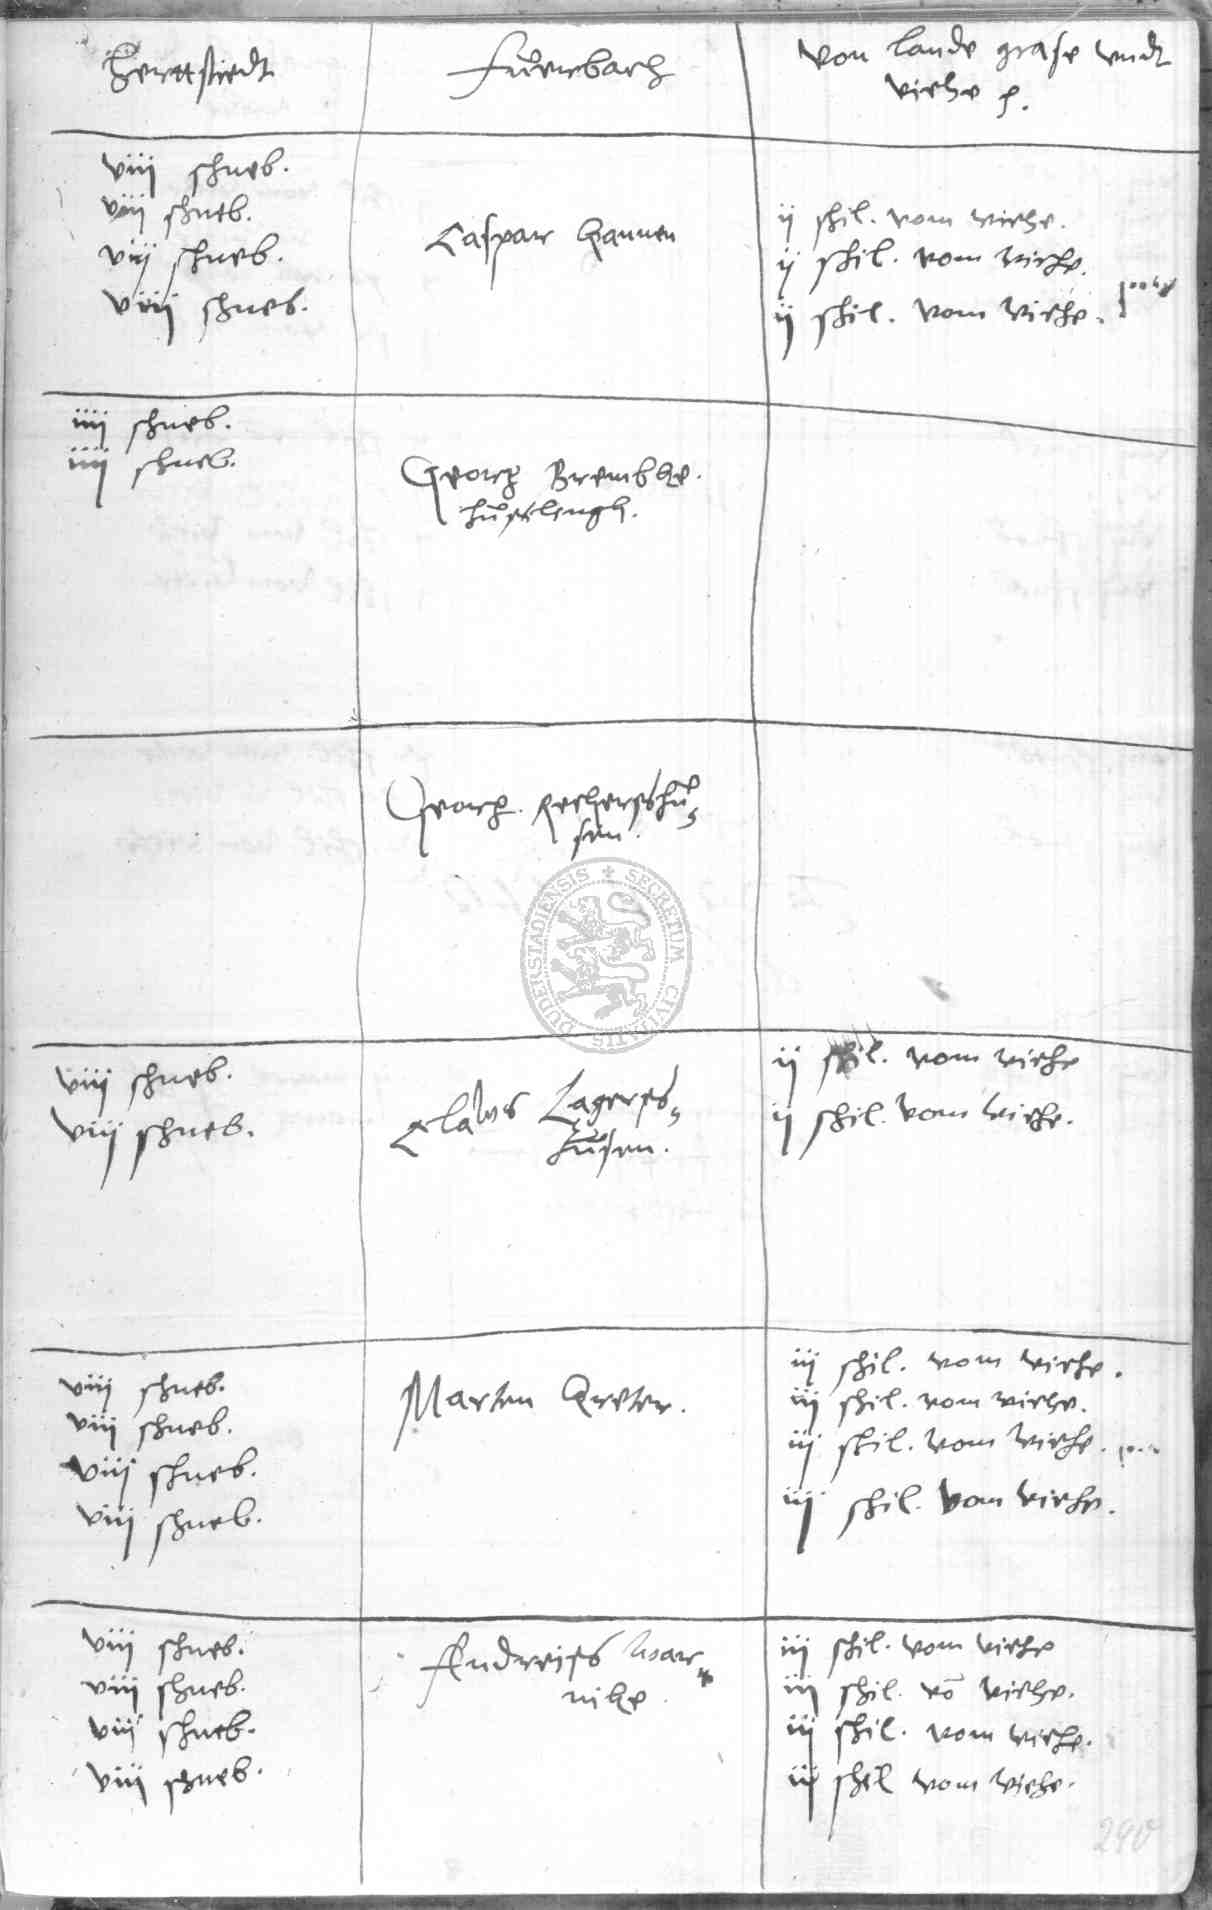 Herttstedt
Fuerbach
von lande grase vndt
viehe p.
viii schneb.
viii schneb.
viij schneb.
viij schneb.
Caspar Hannen
ij schil. vom viehe.
ij schil. vom viehe.
ij schil. vom viehe.
iiij schneb.
iiij schneb.
Georg Brembke.
Georg
sen.
viij schneb.
viij schneb.
Claws Lageres⸗
husen.
ij schil. vom viehe
ij schil. vom viehe.
viij schneb.
viij schneb.
viij schneb.
viij schneb.
Marten Kreter.
iij schil. vom viehe.
iij schil. vom viehe.
iij schil. vom viehe.
iij schil. vom viehe.
viij schneb.
viij schneb.
viij schneb.
viij schneb.
Andreiss War⸗
nike.
iij schil. vom viehe
iij schil. vō viehe.
iij schil. vom viehe.
iij schil vom viehe.
SECRETUM CIVITATIS DUDERSTADIENSIS
290